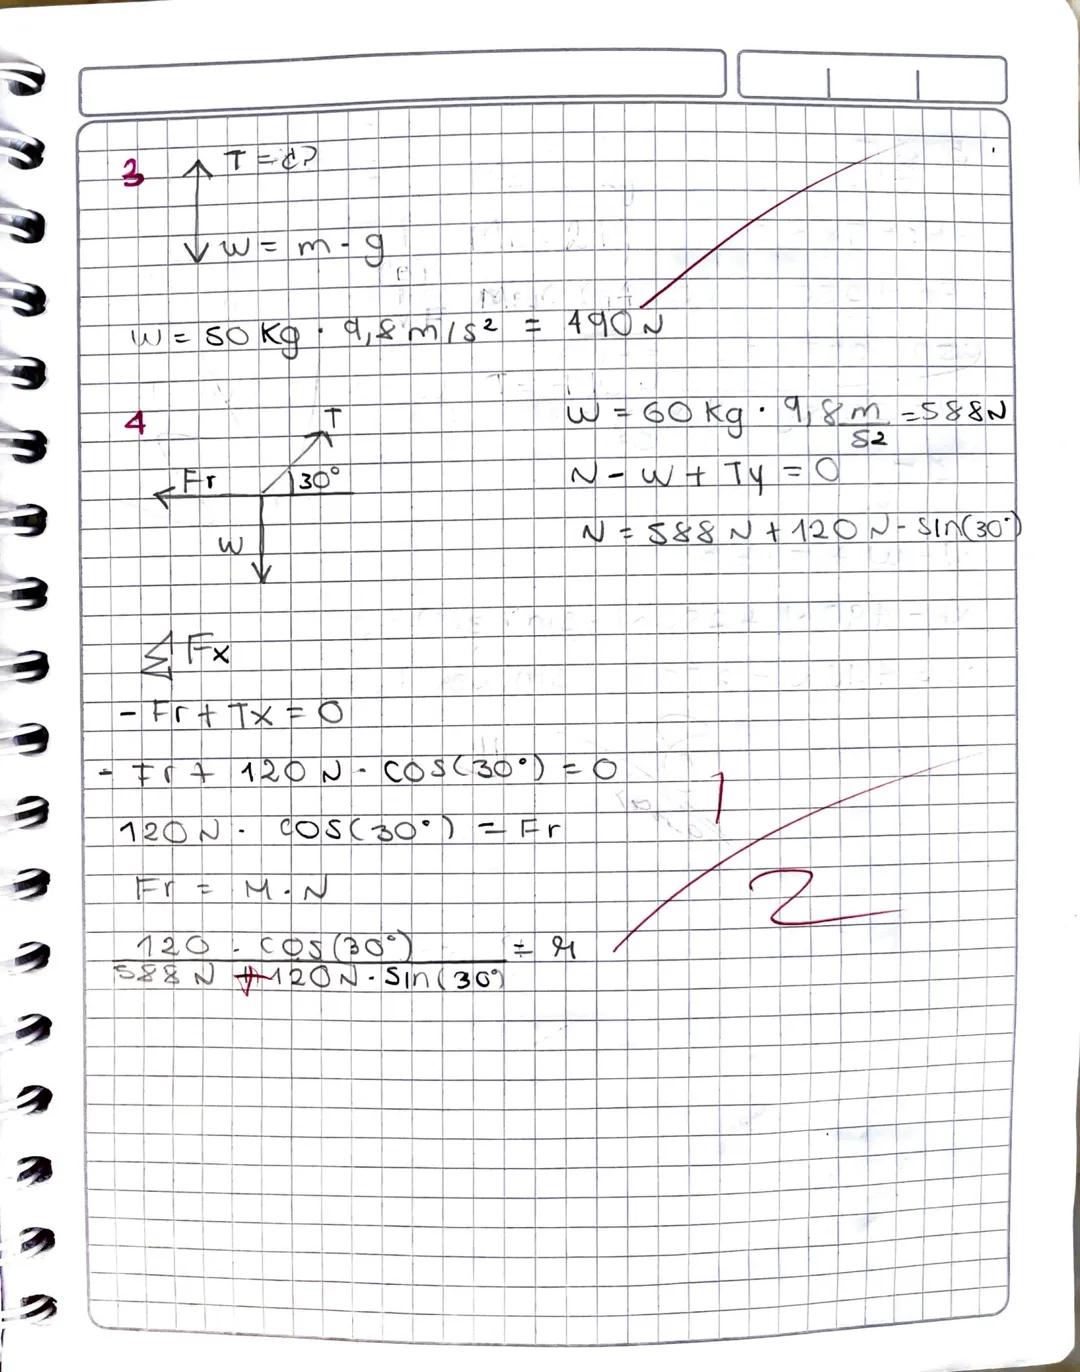 3
T = ¿?
W = m · g
W = 50 Kg · 9,8 m/s² = 490 N
4
T
Fr
30°
W
W = 60 kg · 9,8 m/s² = 588 N
N - W + Ty = 0
N = 588 N + 120 N · sin(30°)
Σ Fx
- Fr + Tx = 0
- Fr + 120 N · cos(30°) = 0
120 N · cos(30°) = Fr
Fr = M · N
120 · cos(30°) = μ
588 N + 120 N · Sin(30°)
1
2